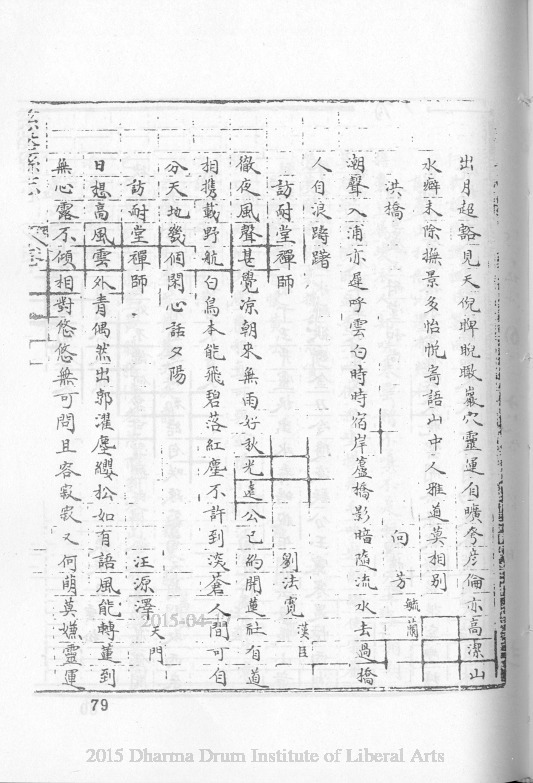 出月超豁見天倪睥睨瞰巖穴靈運自曠秀彥倫亦高潔山
水癖未除撫景多怡悅寄語山中人雅道莫相別
洪橋
向芳毓蘭
潮聲入浦亦遲呼雲白時時宿岸蘆橋影暗隨流水去過橋
人自浪躊躇
訪耐堂禪師
劉法寬漢臣
徹夜風聲甚覺凉朝來無雨好秋光遠公已約開蓮社有道
相携載野航白鳥本能飛碧落紅塵不許到滄蒼人間可自
分天地幾個閑心話夕陽
訪耐堂禪師
汪源澤天門
日想高風雲外青偶然出郭濯塵纓松如有語風能轉蓮到
無心露不傾相對悠悠無可問且容寂寂又何萌莫嫌靈運
79
2015-04
2015 Dharma Drum Institute of Liberal Arts